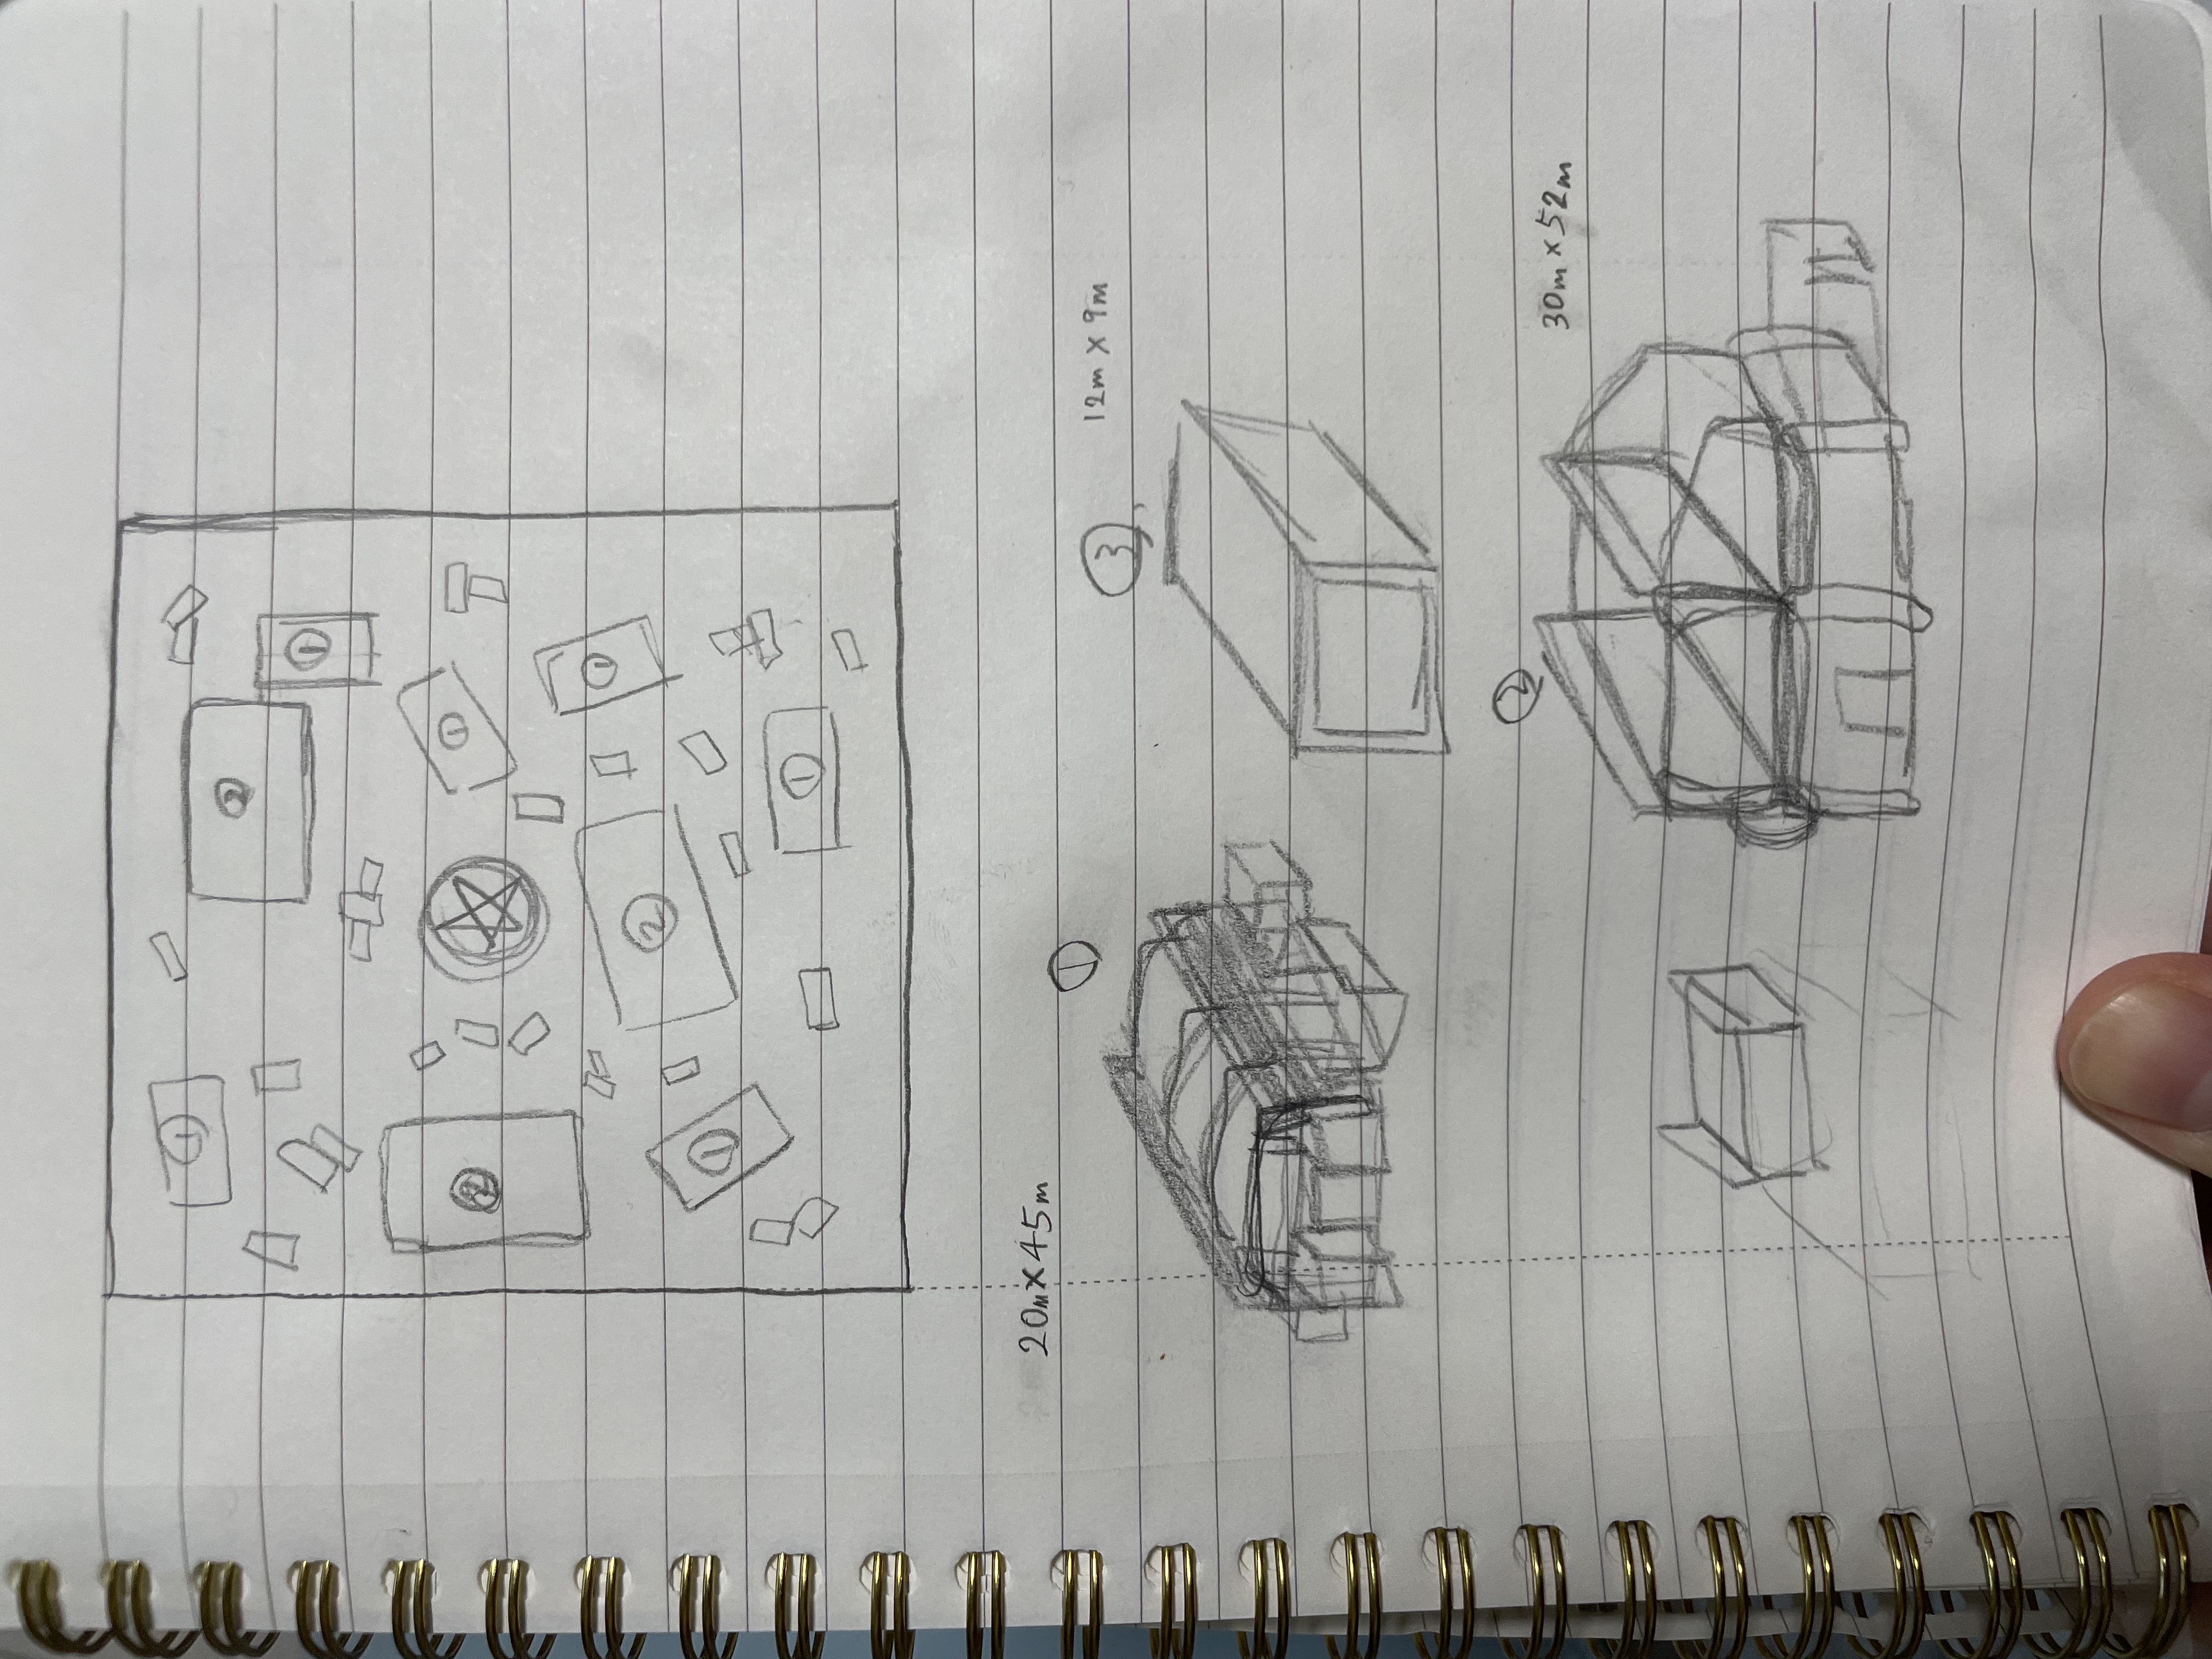 ①
②
①
②
①
①
②
①
①
20m×45m
①
③
12m × 9m
②
30m×52m